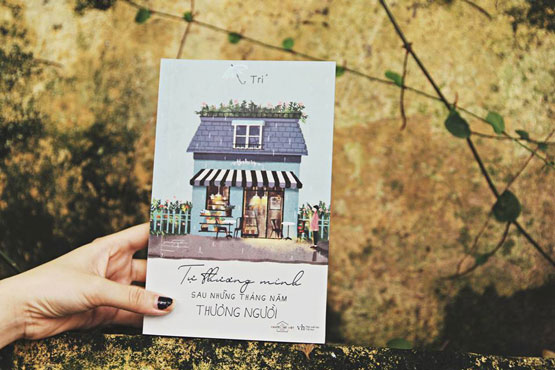 Tri
Tự thương mình
SAU NHỮNG THÁNG NĂM
THƯƠNG NGƯỜI